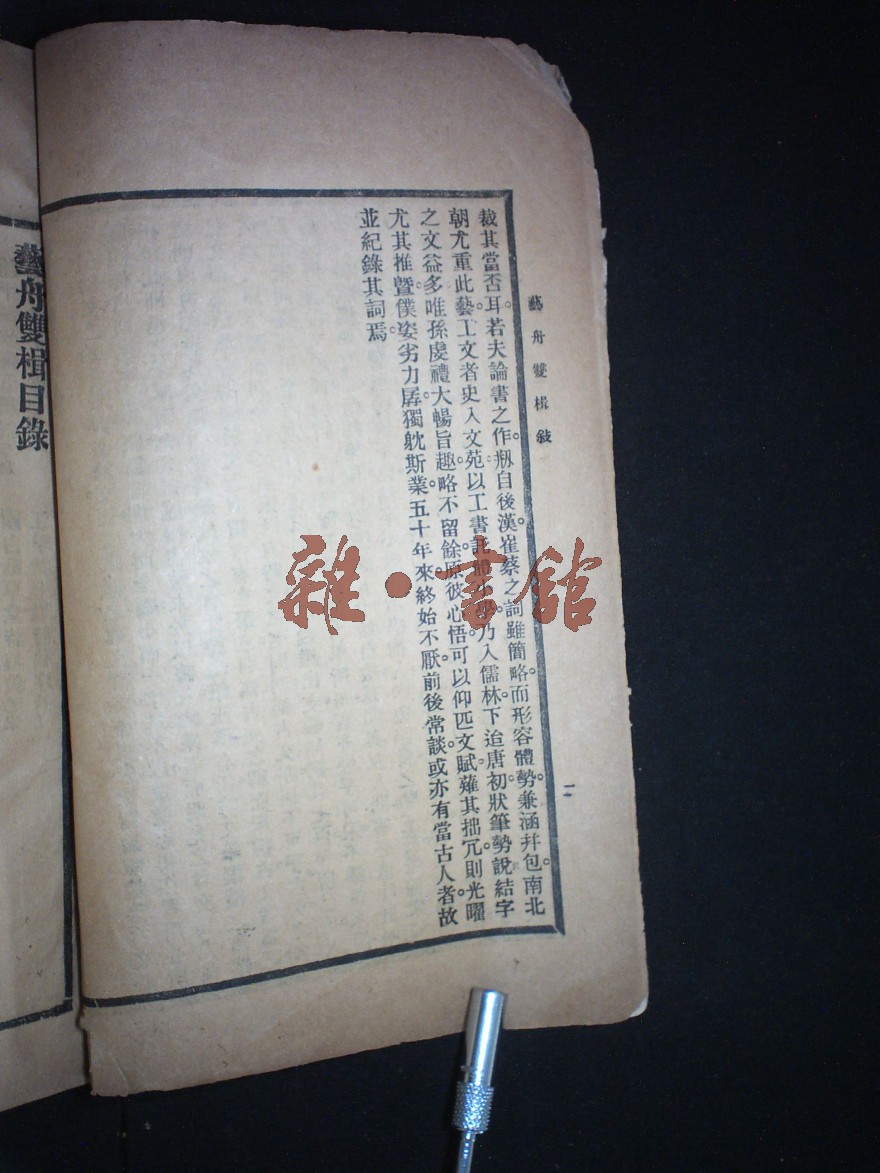 藝舟雙楫敍
二
裁其當否耳。若夫論書之作。剏自後漢。崔蔡之詞雖簡略。而形容體勢。兼涵幷包。南北
朝尤重此藝。工文者史入文苑。以工書託體小學。乃入儒林。下迨唐初。狀筆勢。說結字
之文益多。唯孫虔禮大暢旨趣。略不留餘。原彼心悟。可以仰匹文賦。薙其拙冗。則光曜
尤其推暨。僕姿劣力孱。獨躭斯業。五十年來。終始不厭。前後常談。或亦有當古人者。故
並紀錄其詞焉
藝舟雙楫目錄
雜·書館